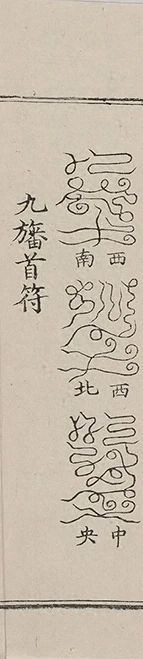 西南
西北
中央
九旛首符